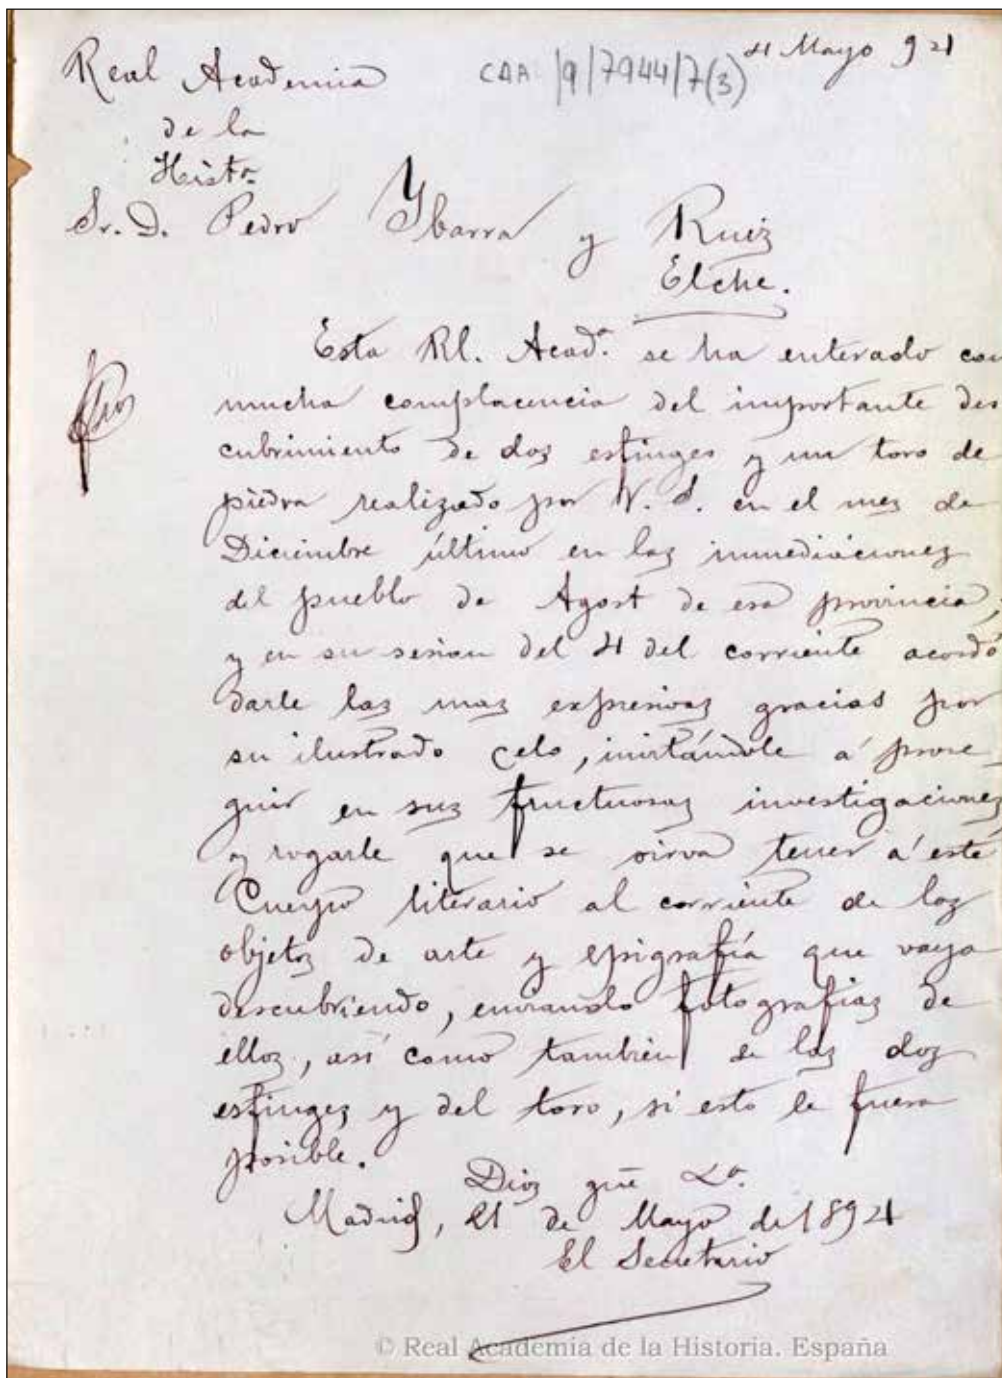 Real Academia
de la
Histª
CAA /9/7944/7(3)
4 Mayo 94
Sr. D. Pedro Ybarra y Ruiz
Elche.
Esta Rl. Acadª se ha enterado con
mucha complacencia del importante des
cubrimiento de dos esfinges y un toro de
piedra realizado por V. S. en el mes de
Diciembre último en las inmediaciones
del pueblo de Agost de esa provincia;
y en su sesion del 4 del corriente acordó
darle las mas expresivas gracias por
su ilustrado celo, invitándole á prose_
guir en sus fructuosas investigaciones
y rogarle que se sirva tener á este
Cuerpo literario al corriente de los
objetos de arte y epigrafía que vaya
descubriendo, enviando fotografias de
ellos, así como tambien de las dos
esfinges y del toro, si esto le fuera
posible.
Dios güe
Madrid, de Mayo de 1894
El Secretario
© Real Academia de la Historia. España